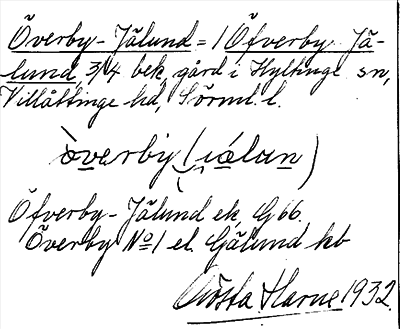 Överby - Jälund = 1 Öfverby Jä-
lund, 3/4 bek, gård i Hyltinge sn,
Villåttinge hd, Sörml. l.
òverby (iálun)
Öfverby - Jälund ek, G 66.
Överby No 1 el. Gälund kb
Gösta Harne 1932.